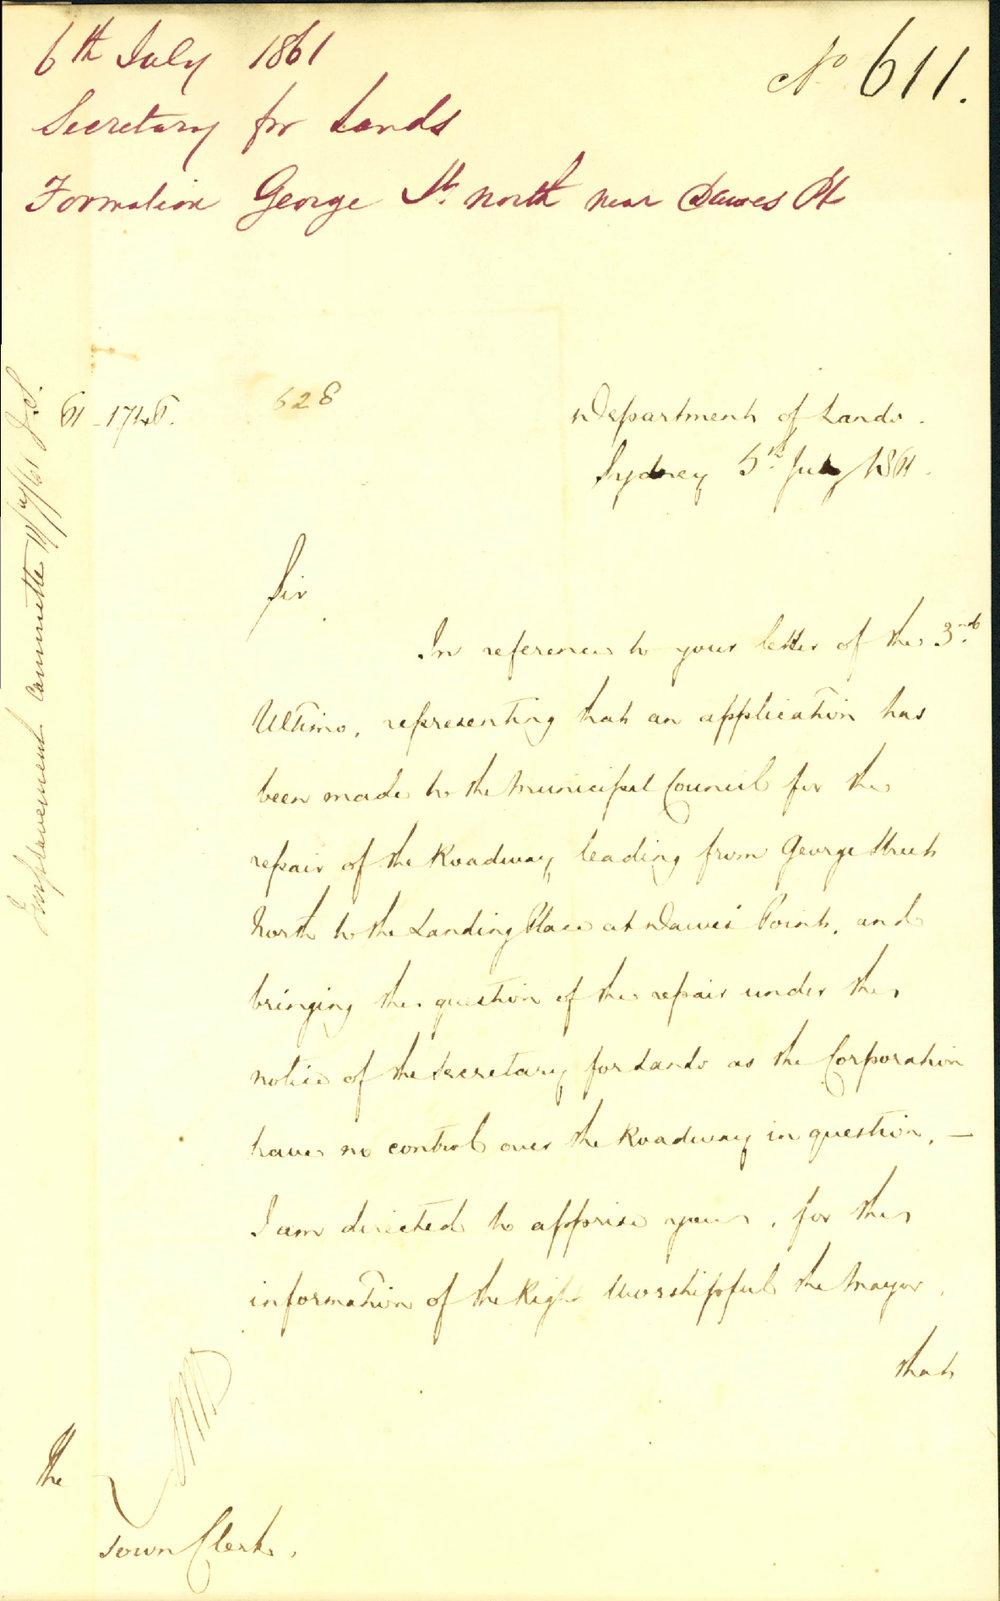 6th July 1861
No 611.
Secretary for Lands
Formation George St. north near Dawes Pt
61-1746.
628
Department of Lands.
Sydney 5th July 1861.
Sir
In reference to your letter of the 3rd
Ultimo, representing that an application has
been made to the Municipal Council for the
repair of the Roadway leading from George Street
North to the Landing Place at Dawes' Point, and
bringing the question of the repair under the
notice of the Secretary for Lands as the Corporation
have no control over the Roadway in question, —
I am directed to apprise you, for the
information of the Right Worshipful the Mayor,
that
The
Town Clerk.
Improvement Committee 10/7/61 J.S.